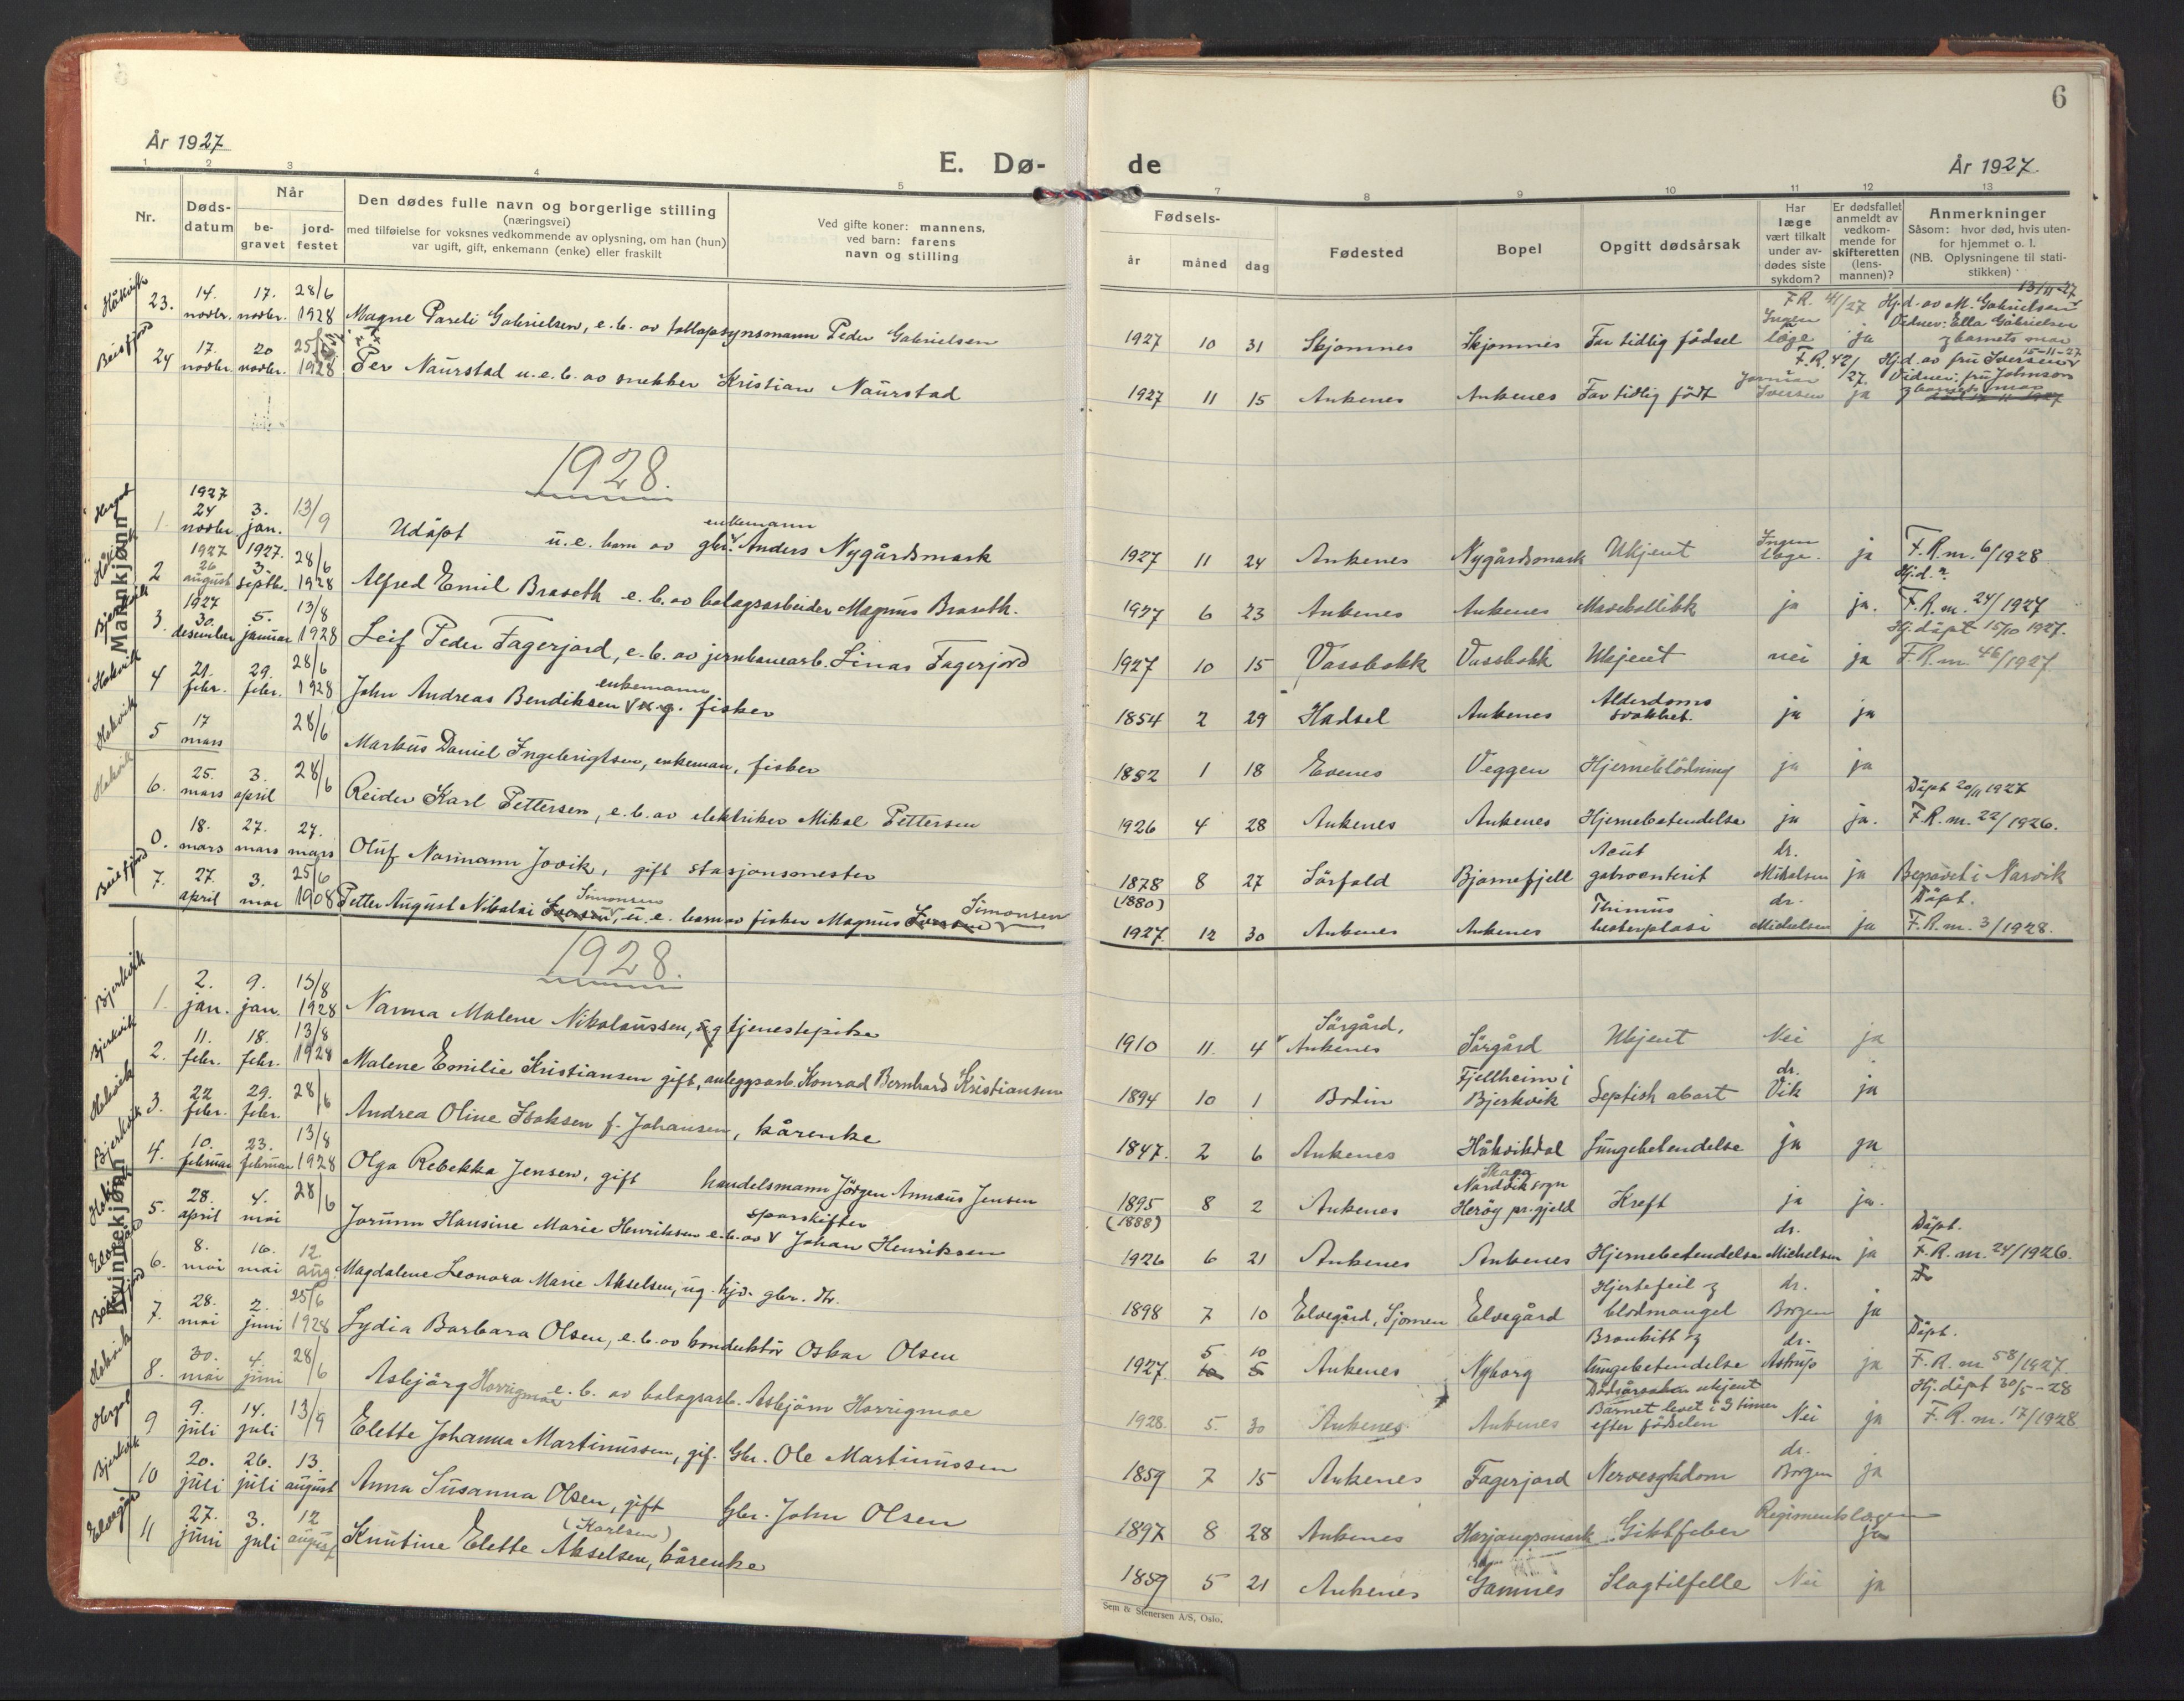 6
År 1927
E. Dø- de
År 1927.
1 2 3 4 5 7 8 9 10 11 12 13
Nr.
Døds-
datum
Når
be-
gravet
jord-
festet
Den dødes fulle navn og borgerlige stilling
(næringsvei)
med tilføielse for voksnes vedkommende av oplysning, om han (hun)
var ugift, gift, enkemann (enke) eller fraskilt
Ved gifte koner: mannens,
ved barn: farens
navn og stilling
Fødsels-
år måned dag
Fødested
Bopel
Opgitt dødsårsak
Har
læge
vært tilkalt
under av-
dødes siste
sykdom?
Er dødsfallet
anmeldt av
vedkom-
mende for
skifteretten
(lens-
mannen)?
Anmerkninger
Såsom: hvor død, hvis uten-
for hjemmet o. l.
(NB. Oplysningene til stati-
stikken)
Håkvik 23. 14. novbr. 17. novbr. 28/6 1928 Magne Pareli Gabrielsen, e. b. av tollopsynsmann Peder Gabrielsen 1927 10 31 Skjomnes Skjomnes For tidlig födsel Ingen læge ja F.R. 41/27 Hj.d. av M. Gabrielsen 13/11-27 Vidner: Ella Gabrielsen og barnets mor
Beisfjord 24 17. novbr. 20 novbr. 1928 Per Naurstad u. e. b. av snekker Kristian Naurstad 1927 11 15 Ankenes Ankenes For tidlig födt Iversen ja F.R. 42/27. Hj.d. av fru Iversen 15-11-27 Vidner: fru Johnson og barnets mor
1928.
Mannkjønn
Herget 1. 1927 24 novbr 3. jan. 13/9 Udöpt u. e. barn av enkemann gbr. Anders Nygårdsmark 1927 11 24 Ankenes Nygårdsmark Ukjent Ingen læge. ja F.R. nr. 6/1928
2 1927 26 august 1927. 3. septbr. 28/6 1928 Alfred Emil Braseth e. b. av bolagsarbeider Magnus Braseth. 1927 6 23 Ankenes Ankenes Mavekollikk ja ja. Hj.d. F.R. nr. 24/1927
3. 1927 30. desember 5. januar 13/8 1928 Leif Peder Fagerjord, e. b. av jernbanearb. Linas Fagerjord 1927 10 15 Vassbakk Vassbakk Ukjent nei ja Hj.döpt 15/10 1927. F.R. nr. 46/1927
Håkvik 4 21. febr. 29. febr. 28/6 1928 John Andreas Bendiksen enkemann fisker 1854 2 29 Hadsel Ankenes Alderdoms svakhet. ja ja
Håkvik 5 17 mars 28/6 Markus Daniel Ingebrigtsen, enkeman, fisker 1852 1 18 Evenes Veggen Hjerneblödning ja ja
Håkvik 6. 25. mars 3. april 28/6 Reidar Karl Pettersen, e. b. av elektriker Mikal Pettersen 1926 4 28 Ankenes Ankenes Hjernebetendelse ja ja. Döpt 20/11 1927 F.R. nr. 22/1926.
0. 18. mars 27. mars 27. mars Oluf Normann Jovik, gift stasjonsmester 1878 (1880) 8 27 Sörfold Bjørnefjell Acut gastroenterit dr. Mikalsen ja Begravet i Narvik
Beisfjord 7. 27. april 3. mai 25/6 1908 Petter August Nikolai Simonsen, u. e. barn av fisker Magnus Simonsen 1927. 12 30 Ankenes Ankenes Thimus dr. Michelsen ja Döpt. F.R. nr. 3/1928.
1928.
Kvinnekjønn
Bjerkvik 1. 2. jan. 9. jan. 13/8 1928 Nanna Malene Nikolaussen, ug tjenestepike 1910 11. 4 Sörgård, Ankenes Sörgård Ukjent Nei ja
Bjerkvik 2. 11. febr. 18. febr. 13/8 1928 Malene Emilie Kristiansen gift, anleggsarb. Konrad Bernhard Kristiansen 1894 10 1 Bodin Fjellheim i Bjerkvik Septisk abort dr. Vik ja
Håkvik 3. 22 febr. 29. febr. 28/6 Andrea Oline Isaksen f. Johansen, kårenke 1847. 2 6 Ankenes Håkvikdal Lungebetendelse ja ja
Bjerkvik 4. 10. februar 23. februar 13/8 1928 Olga Rebekka Jensen, gift handelsmann Jörgen Annæus Jensen 1895 (1888) 8 2 Ankenes Nordvik sogn Herøy pr.gjeld Kreft ja ja.
5. 28. april 4. mai 28/6 Jorunn Hansine Marie Henriksen e. b. av sporskifter Johan Henriksen 1926 6 21 Ankenes Ankenes Hjernebetendelse dr. Michelsen ja Döpt. F.R. nr. 24/1926.
Elvegård 6. 8. mai 16. mai 12. aug. Magdalene Leonora Marie Akselsen, ug. hjv. gbr. dtr. 1898 7 10 Elvegård, Sjomen Elvegård Hjertefeil og blodmangel dr. Borgen ja
Beisfjord 7. 28. mai 2. juni 25/6 1928 Lydia Barbara Olsen, e. b. av konduktör Oskar Olsen 1927 5 10 Ankenes Nyborg Bronkitt og lungebetendelse dr. Astrup ja Döpt. F.R. nr 58/1927.
Håkvik 8. 30. mai 4. juni 28/6 Asbjörg Horrigmoe e. b. av bolagsarb. Asbjörn Horrigmoe 1928. 5. 30 Ankenes Ankenes Dödsårsaken ukjent Barnet levet i 3 timer efter födselen Nei ja Hj.döpt 30/5-28 F.R. nr. 17/1928
Herget 9 9. juli 14. juli 13/9 Elette Johanna Martinussen, gift. Gbr. Ole Martinussen 1859 7 15 Ankenes Fagerjord Nervesykdom dr. Borgen ja
Bjerkvik 10 20. juli 26. juli 13. august Anna Susanna Olsen, gift Gbr. John Olsen 1897 8 28 Ankenes Harjangsmark Giktfeber Regimentslægen ja
Elvegård 11 27. juni 3. juli 12 august Knutine Elette (Karlsen) Akselsen, kårenke 1859 5 21 Ankenes Gamnes Slagtilfelle Nei ja
Sem & Stenersen A/S, Oslo.